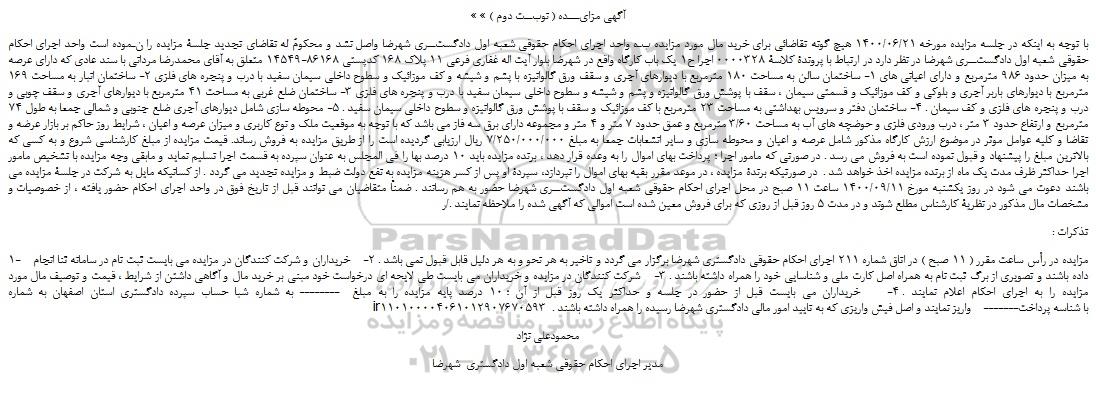 آگهی مزایـــده ( نوبـــت دوم ) » »
با توجه به اینکه در جلسه مزایده مورخه ۱۴۰۰/۰۶/۲۱ هیچ گونه تقاضائی برای خرید مال مورد مزایده بـه واحد اجرای احکام حقوقی شعبه اول دادگستـــری شهرضا واصل نشد و محکومٌ له تقاضای تجدید جلسۀ مزایده را نـموده است واحد اجرای احکام
حقوقی شعبه اول دادگستـــری شهرضا در نظر دارد در ارتباط با پروندۀ کلاسۀ ۰۰۰۰۳۲۸ اجرا ح۱ یک باب کارگاه واقع در شهرضا بلوار آیت اله غفاری فرعی ۱۱ پلاک ۱۶۸ کدپستی ۸۶۱۶۸-۱۴۵۴۹ متعلق به آقای محمدرضا مردانی با سند عادی که دارای عرصه
به میزان حدود ۹۸۶ مترمربع و دارای اعیانی های ۱- ساختمان سالن به مساحت ۱۸۰ مترمربع با دیوارهای آجری و سقف ورق گالوانیزه با پشم و شیشه و کف موزائیک و سطوح داخلی سیمان سفید با درب و پنجره های فلزی ۲- ساختمان انبار به مساحت ۱۶۹
مترمربع با دیوارهای باربر آجری و بلوکی و کف موزائیک و قسمتی سیمان ، سقف با پوشش ورق گالوانیزه و پشم و شیشه و سطوح داخلی سیمان سفید با درب و پنجره های فلزی ۳- ساختمان ضلع غربی به مساحت ۴۱ مترمربع با دیوارهای آجری و سقف چوبی و
درب و پنجره های فلزی و کف سیمان . ۴- ساختمان دفتر و سرویس بهداشتی به مساحت ۲۳ مترمربع با کف موزائیک و سقف با پوشش ورق گالوانیزه و سطوح داخلی سیمان سفید . ۵- محوطه سازی شامل دیوارهای آجری ضلع جنوبی و شمالی جمعا به طول ۷۴
مترمربع و ارتفاع حدود ۳ متر ، درب ورودی فلزی و حوضچه های آب به مساحت ۳/۶۰ مترمربع و عمق حدود ۷ متر و ۴ متر و مجموعه دارای برق سه فاز می باشد که با توجه به موقعیت ملک و نوع کاربری و میزان عرصه و اعیان ، شرایط روز حاکم بر بازار عرضه و
تقاضا و کلیه عوامل موثر در موضوع ارزش کارگاه مذکور شامل عرصه و اعیان و محوطه سازی و سایر انشعابات جمعا به مبلغ ۷/۲۵۰/۰۰۰/۰۰۰ ریال ارزیابی گردیده است را از طریق مزایده به فروش رساند. قیمت مزایده از مبلغ کارشناسی شروع و به کسی که
بالاترین مبلغ را پیشنهاد و قبول نموده است به فروش می رسد . در صورتی که مامور اجرا : پرداخت بهای اموال را به وعده قرار دهد ، برنده مزایده باید ۱۰ درصد بها را فی المجلس به عنوان سپرده به قسمت اجرا تسلیم نماید و مابقی وجه مزایده با تشخیص مامور
اجرا حداکثر ظرف مدت یک ماه از برنده مزایده اخذ خواهد شد . در صورتیکه برندۀ مزایده ، در موعد مقرر بقیه بهای اموال را نپردازد، سپردۀ او پس از کسر هزینه مزایده به نفع دولت ضبط و مزایده تجدید می گردد . از کسانیکه مایل به شرکت در جلسۀ مزایده می
باشند دعوت می شود در روز یکشنبه مورخ ۱۴۰۰/۰۹/۱۱ ساعت ۱۱ صبح در محل اجرای احکام حقوقی شعبه اول دادگستـــری شهرضا حضور به هم رسانند . ضمناً متقاضیان می توانند قبل از تاریخ فوق در واحد اجرای احکام حضور یافته ، از خصوصیات و
مشخصات مال مذکور در نظریۀ کارشناس مطلع شوند و در مدت ۵ روز قبل از روزی که برای فروش معین شده است اموالی که آگهی شده را ملاحظه نمایند ./ر
تذکرات :
مزایده در رأس ساعت مقرر ( ۱۱ صبح ) در اتاق شماره ۲۱۱ اجرای احکام حقوقی دادگستری شهرضا برگزار می گردد و تاخیر به هر نحو و به هر دلیل قابل قبول نمی باشد . ۲- خریداران و شرکت کنندگان در مزایده می بایست ثبت نام در سامانه ثنا انجام ۱-
داده باشند و تصویری از برگ ثبت نام به همراه اصل کارت ملی و شناسایی خود را همراه داشته باشند . ۳- شرکت کنندگان در مزایده و خریداران می بایست طی لایحه ای درخواست خود مبنی بر خرید مال و آگاهی داشتن از شرایط ، قیمت و توصیف مال مورد
مزایده را به اجرای احکام اعلام نمایند . ۴- خریداران می بایست قبل از حضور در جلسه و حداکثر یک روز قبل از آن ؛ ۱۰ درصد پایه مزایده را به مبلغ -------- به شماره شبا حساب سپرده دادگستری استان اصفهان به شماره
ir۱۱۰۱۰۰۰۰۴۰۶۱۰۱۲۹۰۷۶۷۰۵۹۳ با شناسه پرداخت------- واریز نمایند و اصل فیش واریزی که به تایید امور مالی دادگستری شهرضا رسیده را همراه داشته باشند .
محمودعلی نژاد
مدیر اجرای احکام حقوقی شعبه اول دادگستری شهرضا
ParsNamadData
پایگاه اطلاع رسانی مناقصه و مزایده
۰۲۱-۸۸۳۴۹۶۷۰-۵